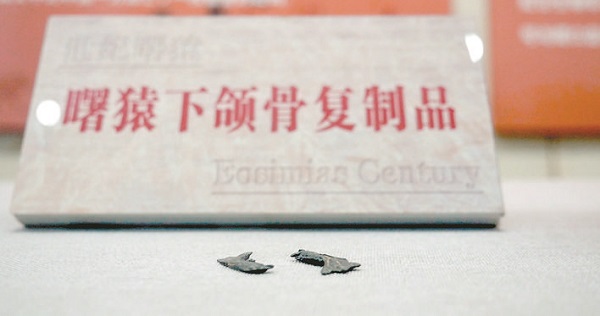 世纪曙猿
曙猿下颌骨复制品
Eosimias Century